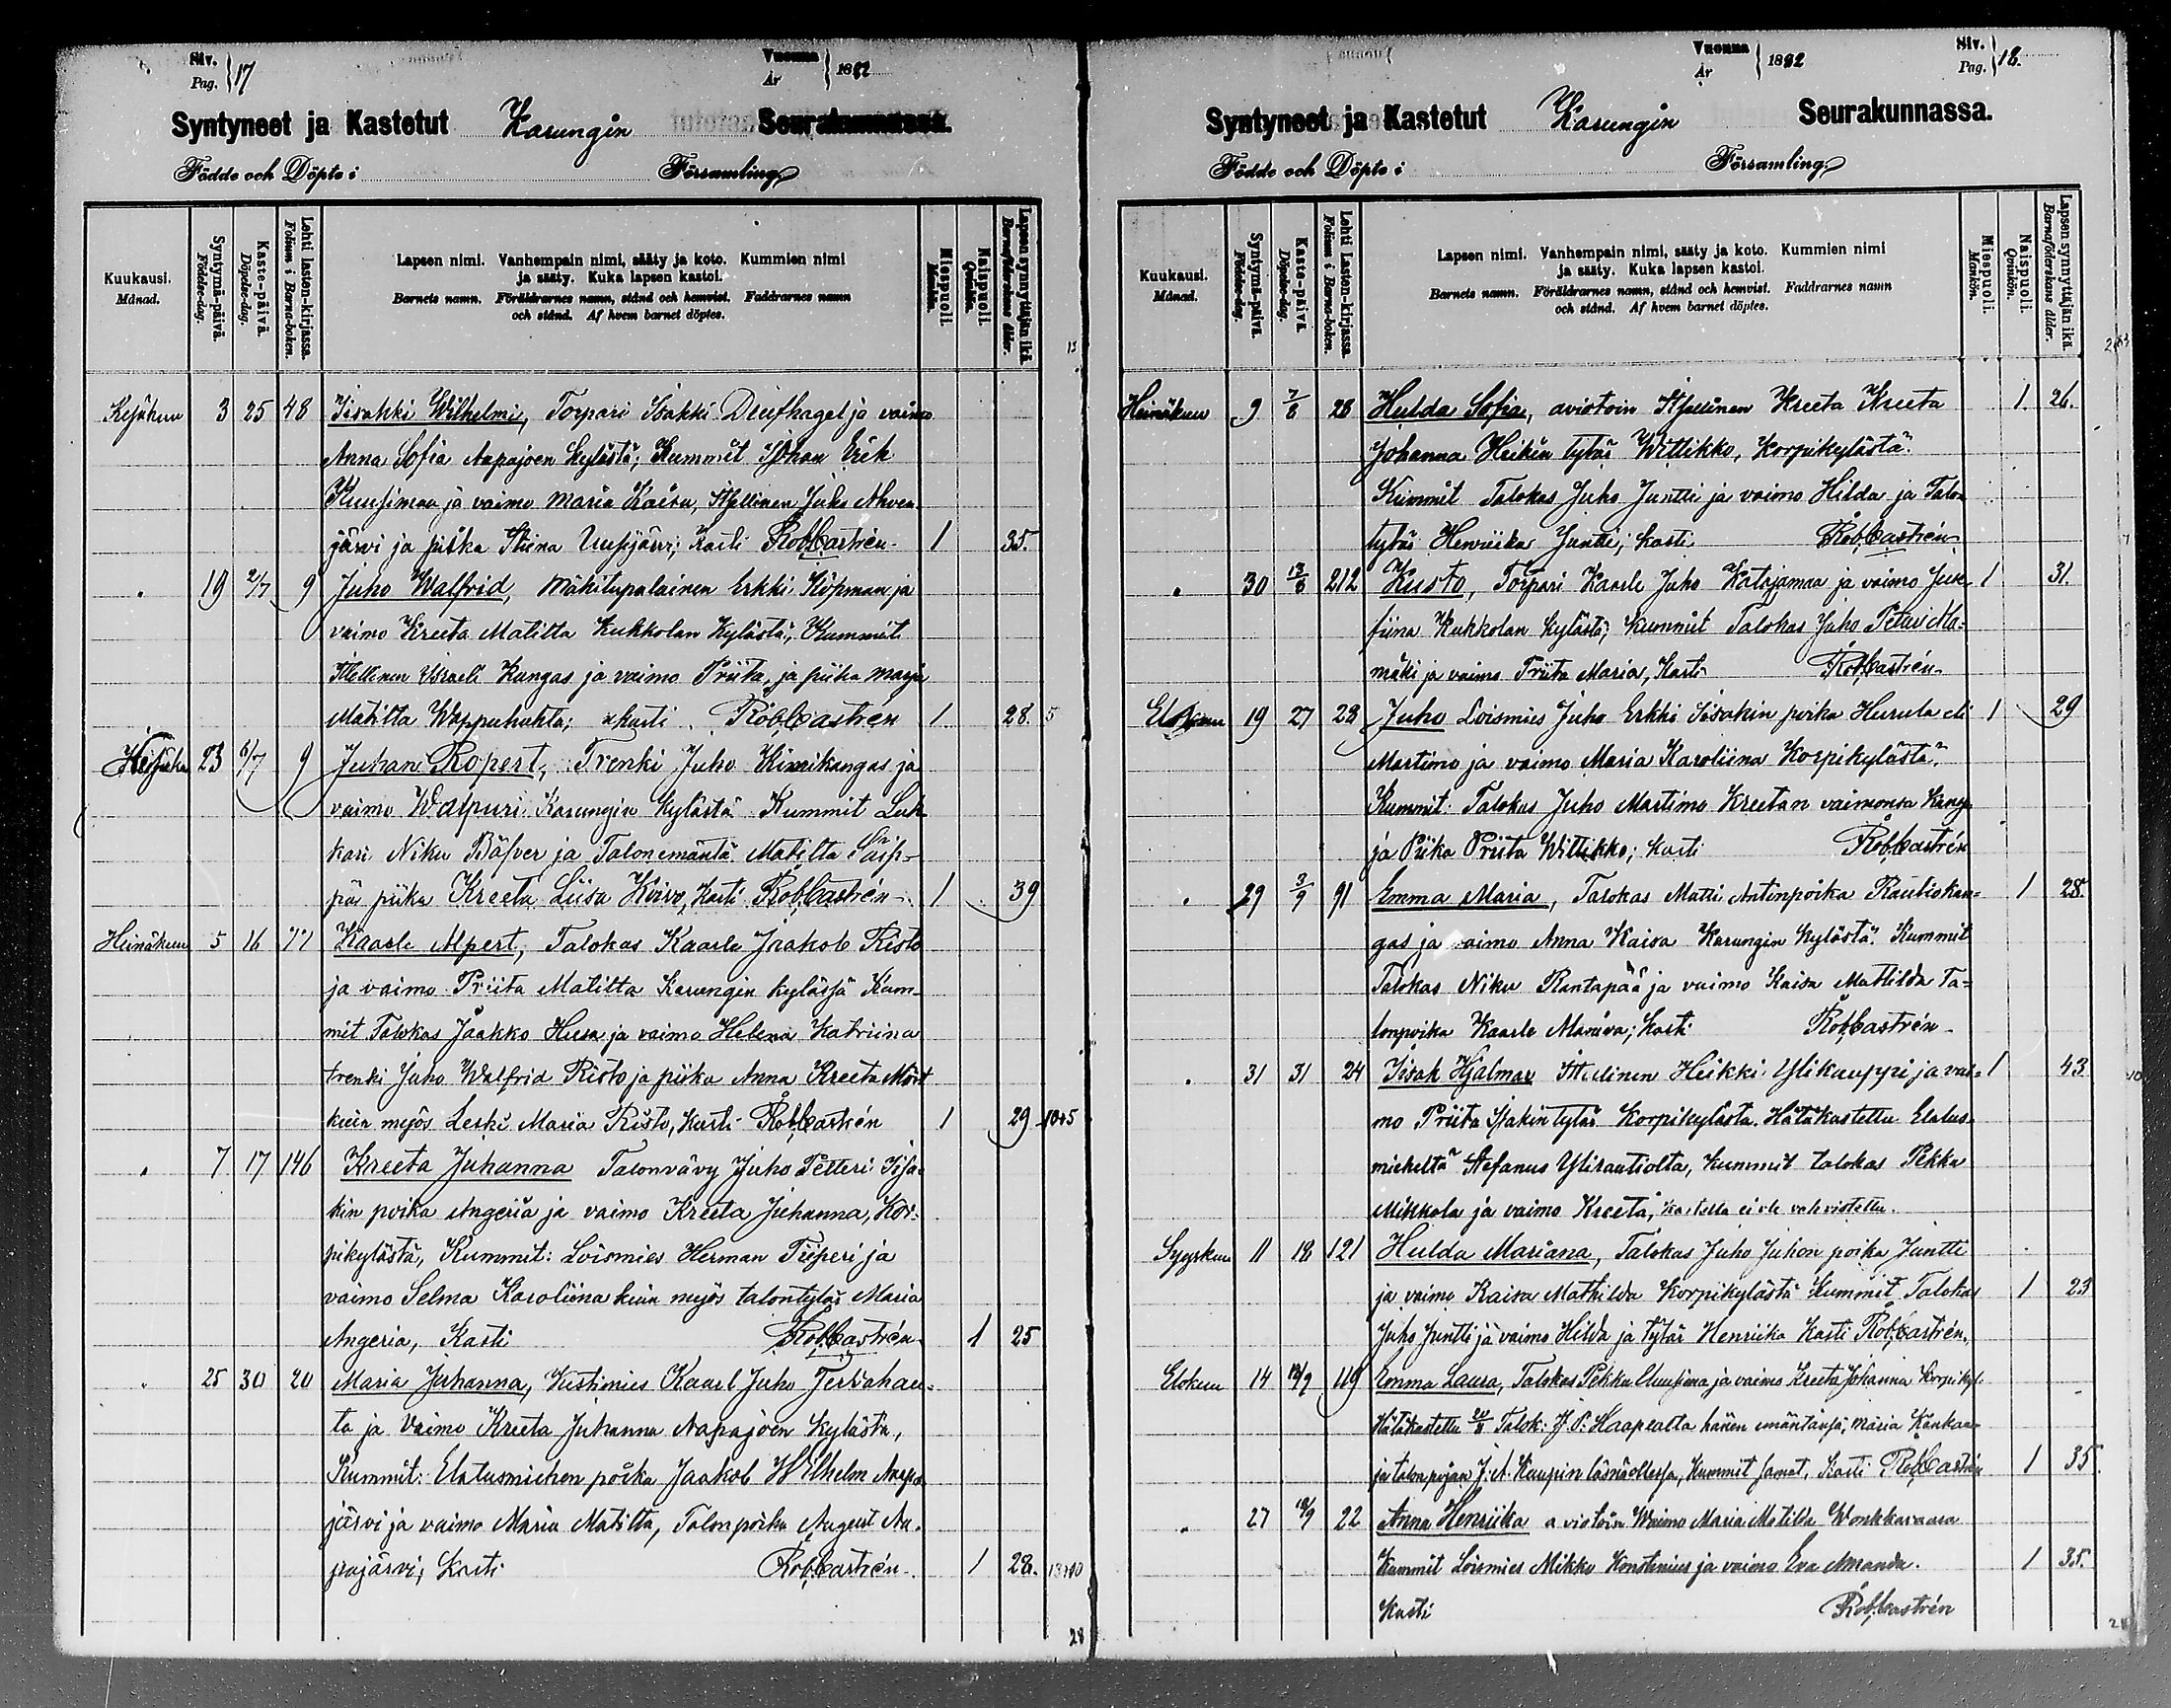 Siv.
Pag. 17
Vuonna
År 1882
Syntyneet ja Kastetut Karungin Seurakunnassa.
Födde och Döpte i Församling
Kuukausi.
Månad.
Syntymä-päivä.
Födelse-dag.
Kaste-päivä.
Döpelse-dag.
Lehti lasten-kirjassa.
Folium i Barna-boken.
Lapsen nimi. Vanhempain nimi, sääty ja koto. Kummien nimi
ja sääty. Kuka lapsen kastoi.
Barnets namn. Föräldrarnes namn, stånd och hemvist. Faddrarnes namn
och stånd. Af hvem barnet döptes.
Miespuoli.
Mankön.
Naispuoli.
Qvinkön.
Lapsen synnyttäjän ikä.
Barnaföderskans ålder.
Kesäkuu 3 25 48 Iisakki Wilhelmi, Torpari Isakki ja vaimo
Anna Sofia Aapajoen kylästä; Kummit Johan Erik
Kuusimaa ja vaimo Maria Kaisa, Itsellinen Juho Ahven
järvi ja piika Stiina Uusijärvi; Kasti Rob. Castrén 1 35.
" 19 2/7 9 Juho Walfrid, Mäkitupalainen Erkki Köpman ja
vaimo Kreeta Matilta Kukkolan kylästä, Kummit
Itsellinen Israeli Kangas ja vaimo Priita, ja piika Marja
Matilta Wappuhahta; kasti Rob. Castrén 1 28. 5
23 6/7 9 Juhan Ropert, Trenki Juho Kinnikangas ja
vaimo Walpuri Karungin kylästä Kummit Luk
kari Niku Bäfver ja Talonemäntä Matilta
pä piika Kreeta Liisa Koivo, Kasti Rob. Castrén 1 39
Heinäkuu 5 16 77 Kaarle Alpert, Talokas Kaarle Jaakob Risto
ja vaimo Priita Matilta Karungin kylässä Kum-
mit Talokas Jaakko Husa ja vaimo Helena Katriina
trenki Juho Walfrid Risto ja piika Anna Kreeta
kuin myös Leski Maria Risto, Kasti Rob. Castrén 1 29
" 7 17 146 Kreeta Juhanna Talonvävy Juho Petteri Iisa-
kin poika Angeria ja vaimo Kreeta Juhanna, Kor-
pikylästä, Kummit: Loismies Herman Tiiperi ja
vaimo Selma Karoliina kuin myös talontytär Maria
Angeria, Kasti Rob. Castrén 1 25
" 25 30 20 Maria Juhanna, Kestimies Kaarl Juho Terwahau-
ta ja Vaimo Kreeta Juhanna Aapajoen kylästä,
Kummit: Elatusmiehen poika Jaakob Wilhelm Aapa
järvi ja vaimo Maria Matilta, Talonpoika August Aa-
pajärvi; Kasti Rob. Castrén 1 28.
28
Vuonna
År 1882
Siv.
Pag. 18.
Syntyneet ja Kastetut Karungin Seurakunnassa.
Födde och Döpte i Församling
Kuukausi.
Månad.
Syntymä-päivä.
Födelse-dag.
Kaste-päivä.
Döpelse-dag.
Lehti lasten-kirjassa.
Folium i Barna-boken.
Lapsen nimi. Vanhempain nimi, sääty ja koto. Kummien nimi
ja sääty. Kuka lapsen kastoi.
Barnets namn. Föräldrarnes namn, stånd och hemvist. Faddrarnes namn
och stånd. Af hvem barnet döptes.
Miespuoli.
Mankön.
Naispuoli.
Qvinkön.
Lapsen synnyttäjän ikä.
Barnaföderskans ålder.
Heinäkuu 9 7/8 28 Hulda Sofia, aviotoin Itsellinen Kreeta Kreeta 1. 26.
Johanna Heikin tytär Wittikko, Korpikylästä.
Kummit Talokas Juho Juntti ja vaimo Hilda ja Talon
tytär Henriika Juntti; Kasti Rob. Castrén
" 30 13/8 212 Kusto, Torpari Kaarle Juho Katajamaa ja vaimo Juse- 1 31.
fiina Kukkolan kylästä; Kummit Talokas Juho
mäki ja vaimo Priita Maria, Kasti Rob. Castrén
Elokuu 19 27 28 Juho Loismies Juho Erkki Iisakin poika Hurula eli 1 29
Martimo ja vaimo Maria Karoliina Korpikylästä.
Kummit: Talokas Juho Martimo Kreetan vaimonsa kanssa
ja Piika Priita Wittikko; Kasti Rob. Castrén
" 29 3/9 91 Emma Maria, Talokas Matti Antinpoika Rautiokan- 1 28.
gas ja vaimo Anna Kaisa Karungin kylästä. Kummit
Talokas Niku Rantapää ja vaimo Kaisa Mathilda Ta-
lonpoika Kaarle; Kasti Rob. Castrén
" 31 31 24 Iisak Hjalmar Itsellinen Heikki Ylikauppi ja vai- 1 43
mo Priita Isakin tytär Korpikylästä. Hätäkastettu Elatus-
mieheltä Stefanus Ylirautiolta, Kummit talokas Pekka
Mikkola ja vaimo Kreeta, kastetta ei ole vahvistettu.
Syyskuu 11 18 121 Hulda Mariana, Talokas Juho Juhon poika Juntti
ja vaimo Kaisa Mathilda Korpikylästä Kummit Talokas 1 23
Juho Juntti ja vaimo Hilda ja tytär Henriika Kasti Rob. Castrén.
Elokuu 14 119 Emma Laura, Talokas Pekka Uusimaa ja vaimo Kreeta Johanna
Hätäkastettu Talok: J. P. Haapealta hänen emäntänsä, Maria
ja talonpojan J. A. Kaupin läsnäollessa, Kummit samat, Kasti Rob. Castrén 1 35.
" 27 22 Anna Henriika aviotoin Waimo Maria Matilda Wonkkavaara
Kummit Loismies Mikko ja vaimo Eva Amanda. 1 35.
Kasti Rob. Castrén